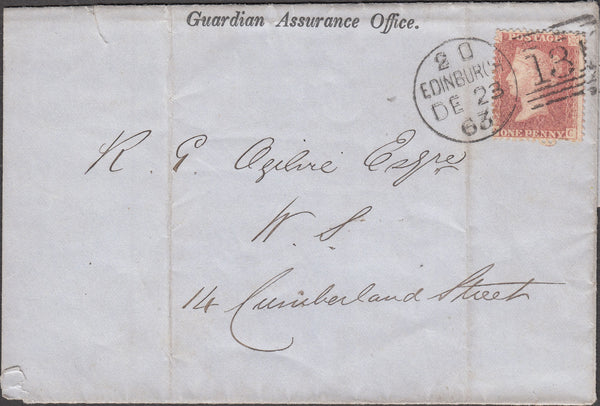 Guardian Assurance Office.
POSTAGE
ONE PENNY
2 D
EDINBURGH
DE 23
63
131
R. G. Ogilvie Esqre
W. S.
14 Cumberland Street